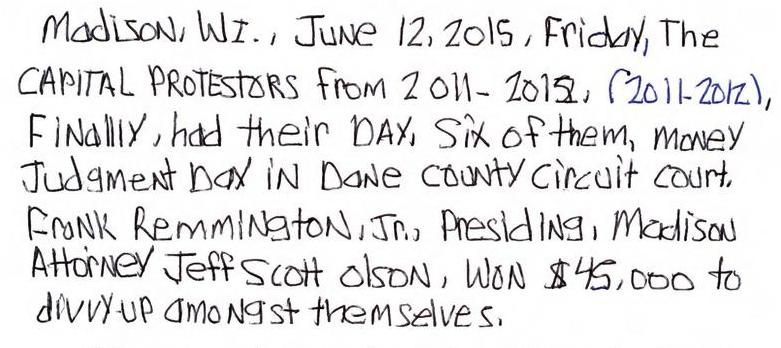 Madison, WI., June 12, 2015, Friday, The
CAPITAL PROTESTORS from 2011-2012, (2011-2012),
Finally, had their DAY, Six of them, money
Judgment Day in Dane County Circuit court.
Frank Remmington, Jr., Presiding, Madison
Attorney Jeff Scott Olson, Won $45,000 to
divvy-up amongst themselves.